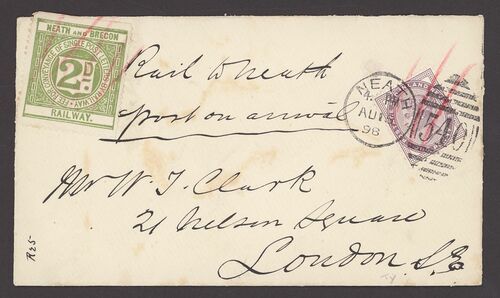 NEATH AND BRECON
FEE FOR CONVEYANCE OF SINGLE POST LETTER BY RAILWAY
2D.
RAILWAY.
Rail to neath
post on arrival
NEATH
AU
98
546
Mr W. J. Clark
21 Nelson Square
London S.E
R25